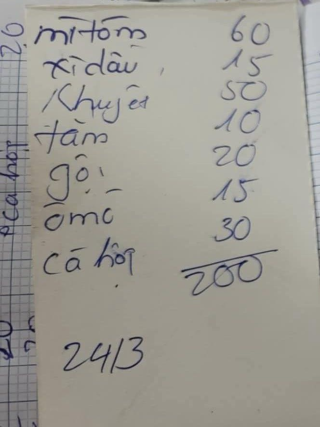 mì tôm 60
xì dầu 15
Khuyên 50
tăm 10
gội 20
ômô 15
cá hộp 30
200
24/3
cá hộp
20
20